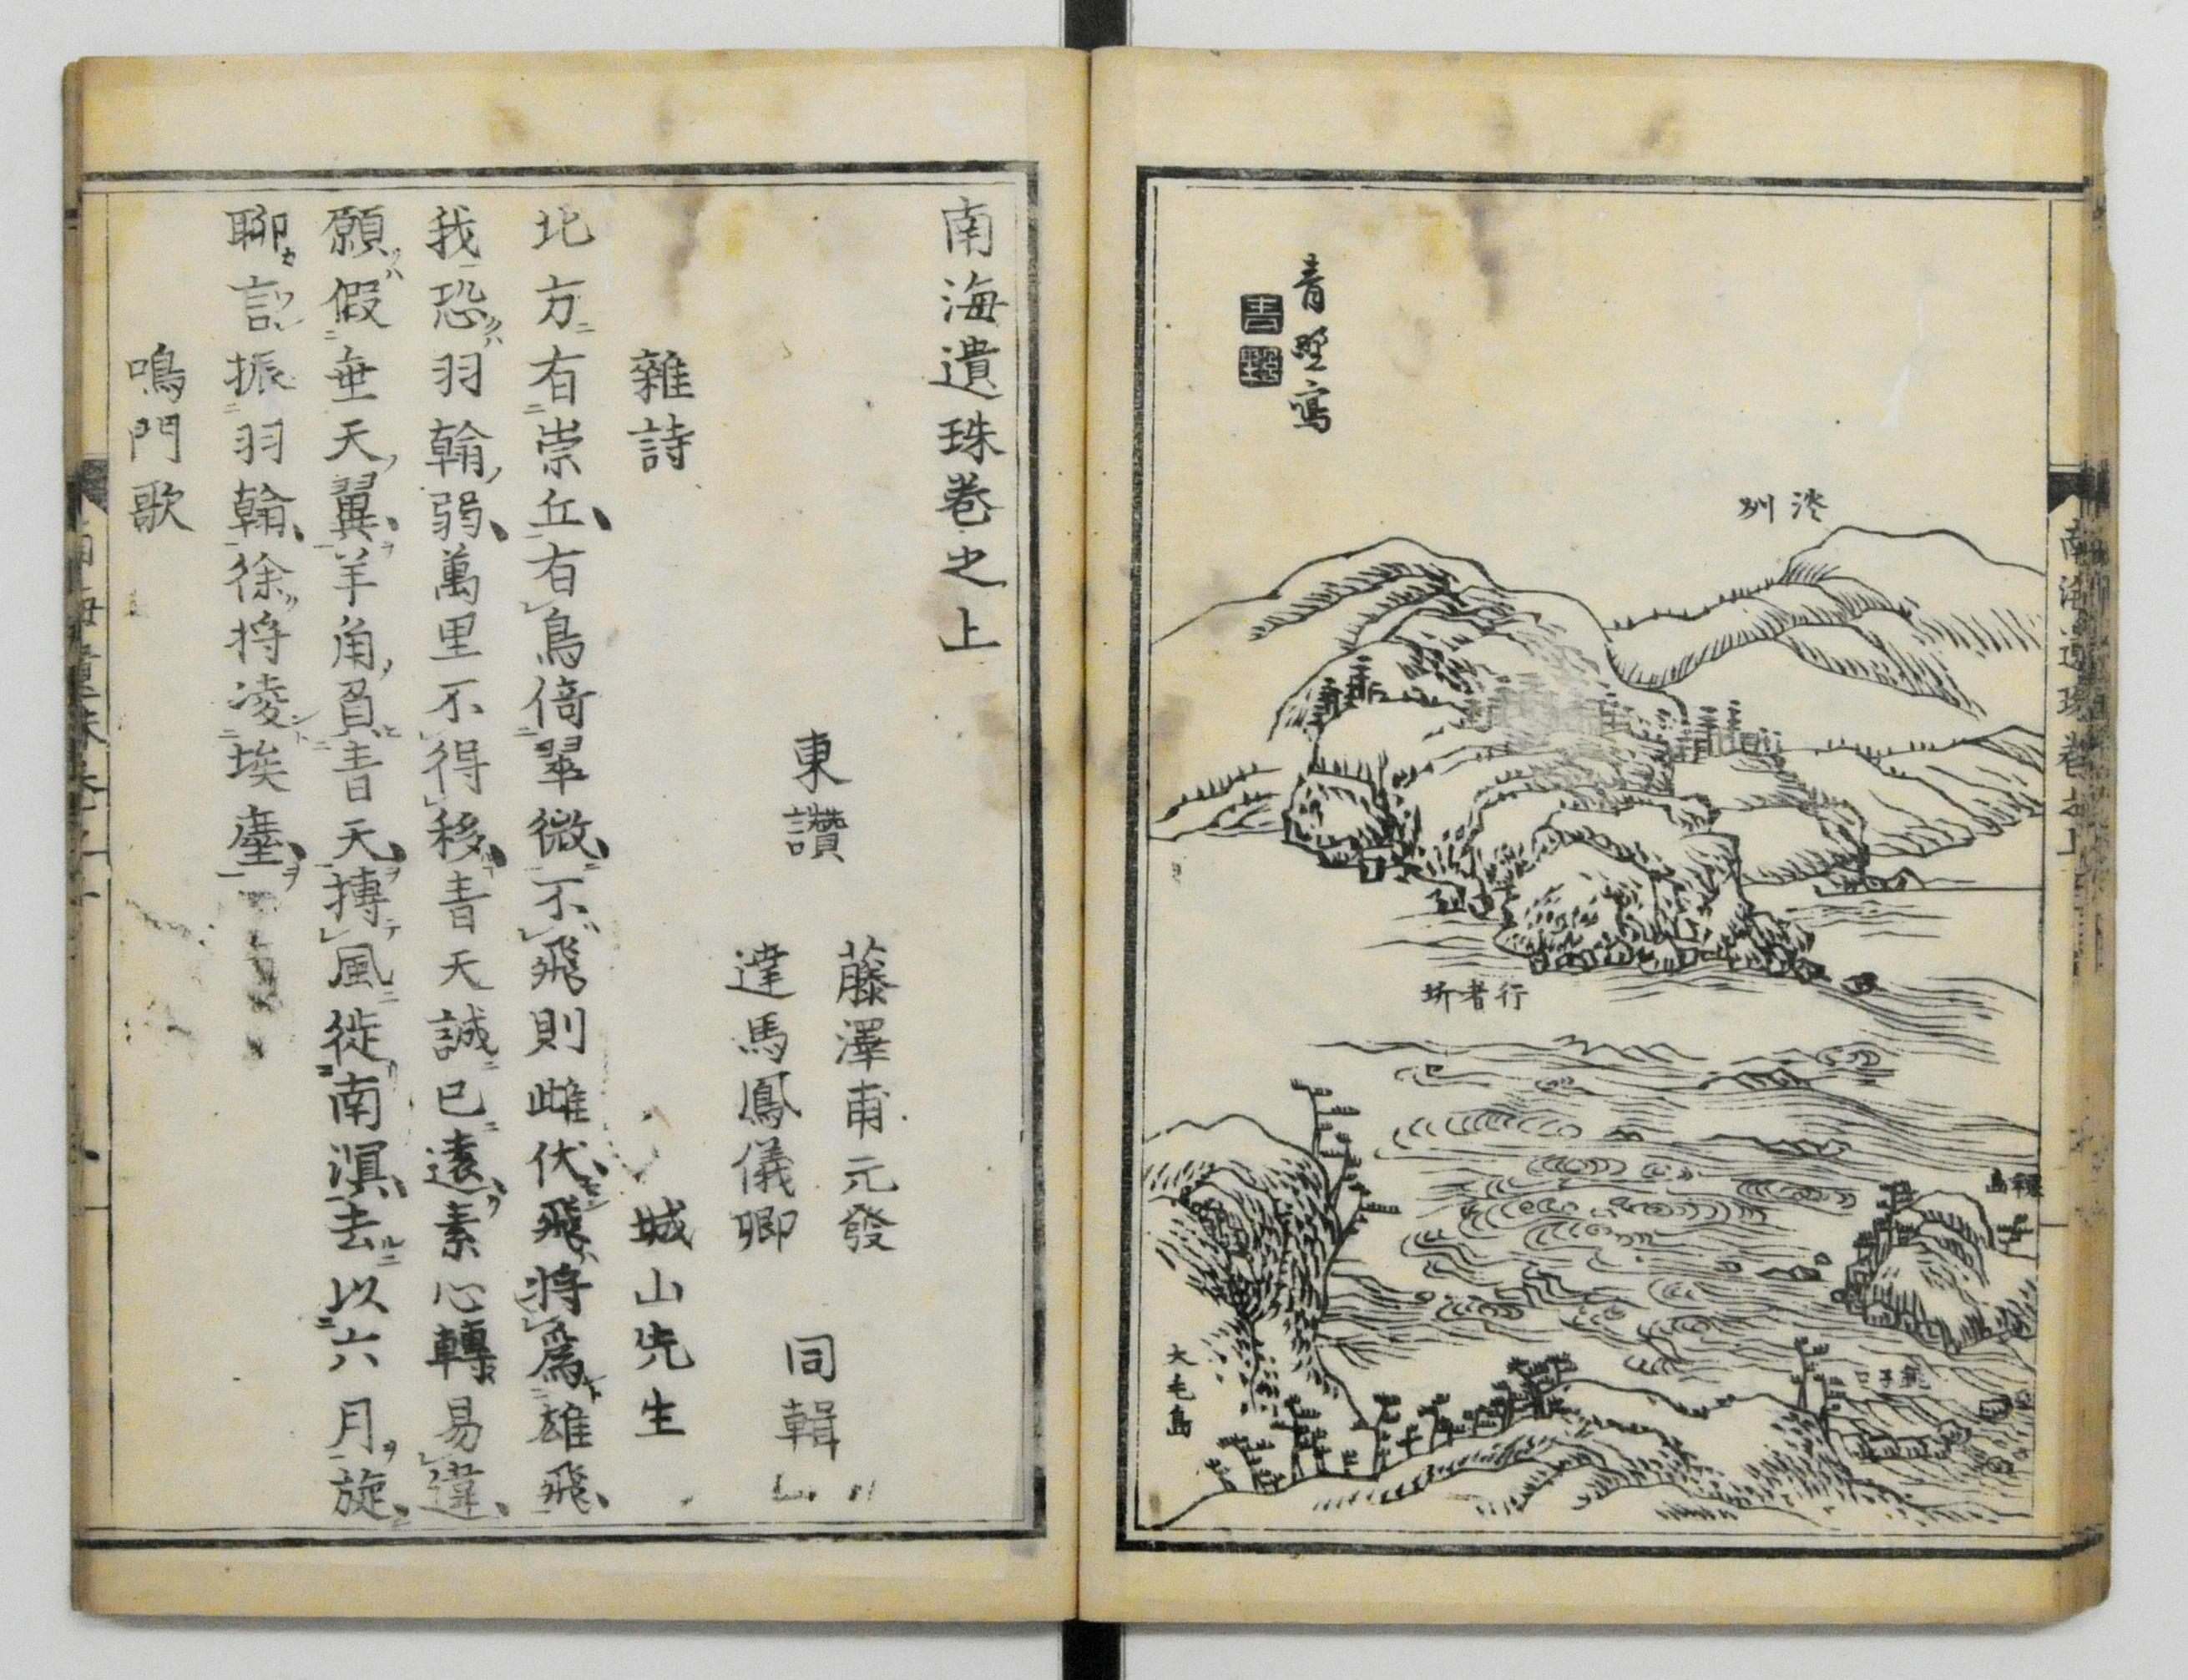 青㙒寫
淡州
行者坊
大毛島
南海遺珠卷之上
南海遺珠卷之上
東讚
藤澤甫元發
達馬鳳儀卿
同輯
雜詩
城山先生
北方有崇丘有鳥倚翠微不飛則雌伏飛將爲雄飛
我恐羽翰弱萬里不得移靑天誠已遠素心轉易違
願假垂天翼羊角負靑天摶風徙南溟去以六月旋
聊試振羽翰徐将凌埃塵
鳴門歌